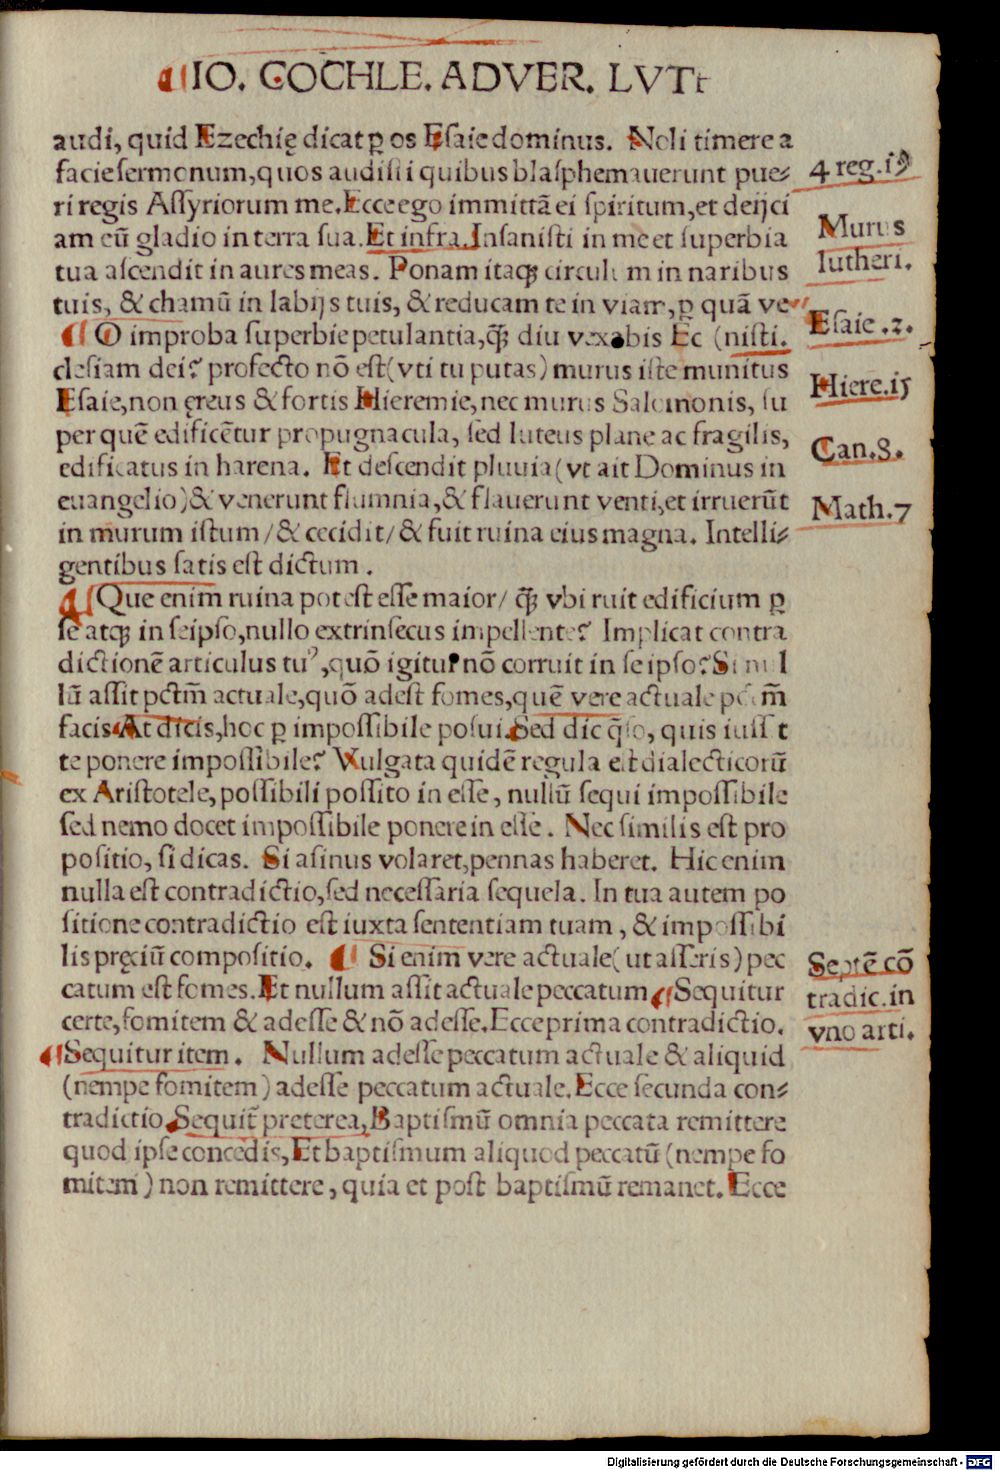 IO. COCHLE. ADVER. LVTt
audi, quid Ezechię dicat ꝑ os Esaie dominus. Noli timere a
facie sermonum, quos audisti quibus blasphemauerunt pue⸗
ri regis Assyriorum me. Ecce ego immittā ei spiritum, et deijci
am eū gladio in terra sua. Et infra. Insanisti in me et superbia
tua ascendit in aures meas. Ponam itaqꝫ circulum in naribus
tuis, & chamū in labijs tuis, & reducam te in viam, ꝑ quā ve⸗
¶ O improba superbie petulantia, q̄ꝫ diu vexabis Ec (nisti.
clesiam dei? profecto nō est (vti tu putas) murus iste munitus
Esaie, non ęreus & fortis Hieremie, nec murus Salomonis, su
per quē edificētur propugnacula, sed luteus plane ac fragilis,
edificatus in harena. Et descendit pluuia (vt ait Dominus in
euangelio) & venerunt flumnia, & flauerunt venti, et irruerūt
in murum istum / & cecidit / & fuit ruina eius magna. Intelli⸗
gentibus satis est dictum.
¶ Que enim ruina potest esse maior / q̄ꝫ vbi ruit edificium ꝑ
se atqꝫ in seipso, nullo extrinsecus impellente? Implicat contra
dictionē articulus tuꝰ, quō igitur nō corruit in seipso? Si nul
lū assit pctm̄ actuale, quō adest fomes, quē vere actuale pctm̄
facis At dicis, hoc ꝑ impossibile posui. Sed dic q̄so, quis iussit
te ponere impossibile? Vulgata quidē regula est dialecticorū
ex Aristotele, possibili possito in esse, nullū sequi impossibile
sed nemo docet impossibile ponere in esse. Nec similis est pro
positio, si dicas. Si asinus volaret, pennas haberet. Hic enim
nulla est contradictio, sed necessaria sequela. In tua autem po
sitione contradictio est iuxta sententiam tuam, & impossibi
lis pręciū compositio. ¶ Si enim vere actuale (ut asseris) pec
catum est fomes. Et nullum assit actuale peccatum ¶ Sequitur
certe, fomitem & adesse & nō adesse. Ecce prima contradictio.
¶ Sequitur item. Nullum adesse peccatum actuale & aliquid
(nempe fomitem) adesse peccatum actuale. Ecce secunda con⸗
tradictio. Sequit̄ preterea, Baptismū omnia peccata remittere
quod ipse concedis, Et baptismum aliquod peccatū (nempe fo
mitem) non remittere, quia et post baptismū remanet. Ecce
4 reg. i9
Murus
lutheri.
Esaie .2.
Hiere. i5
Can. 8.
Math. 7
Septē cō
tradic. in
vno arti.
Digitalisierung gefördert durch die Deutsche Forschungsgemeinschaft - DFG